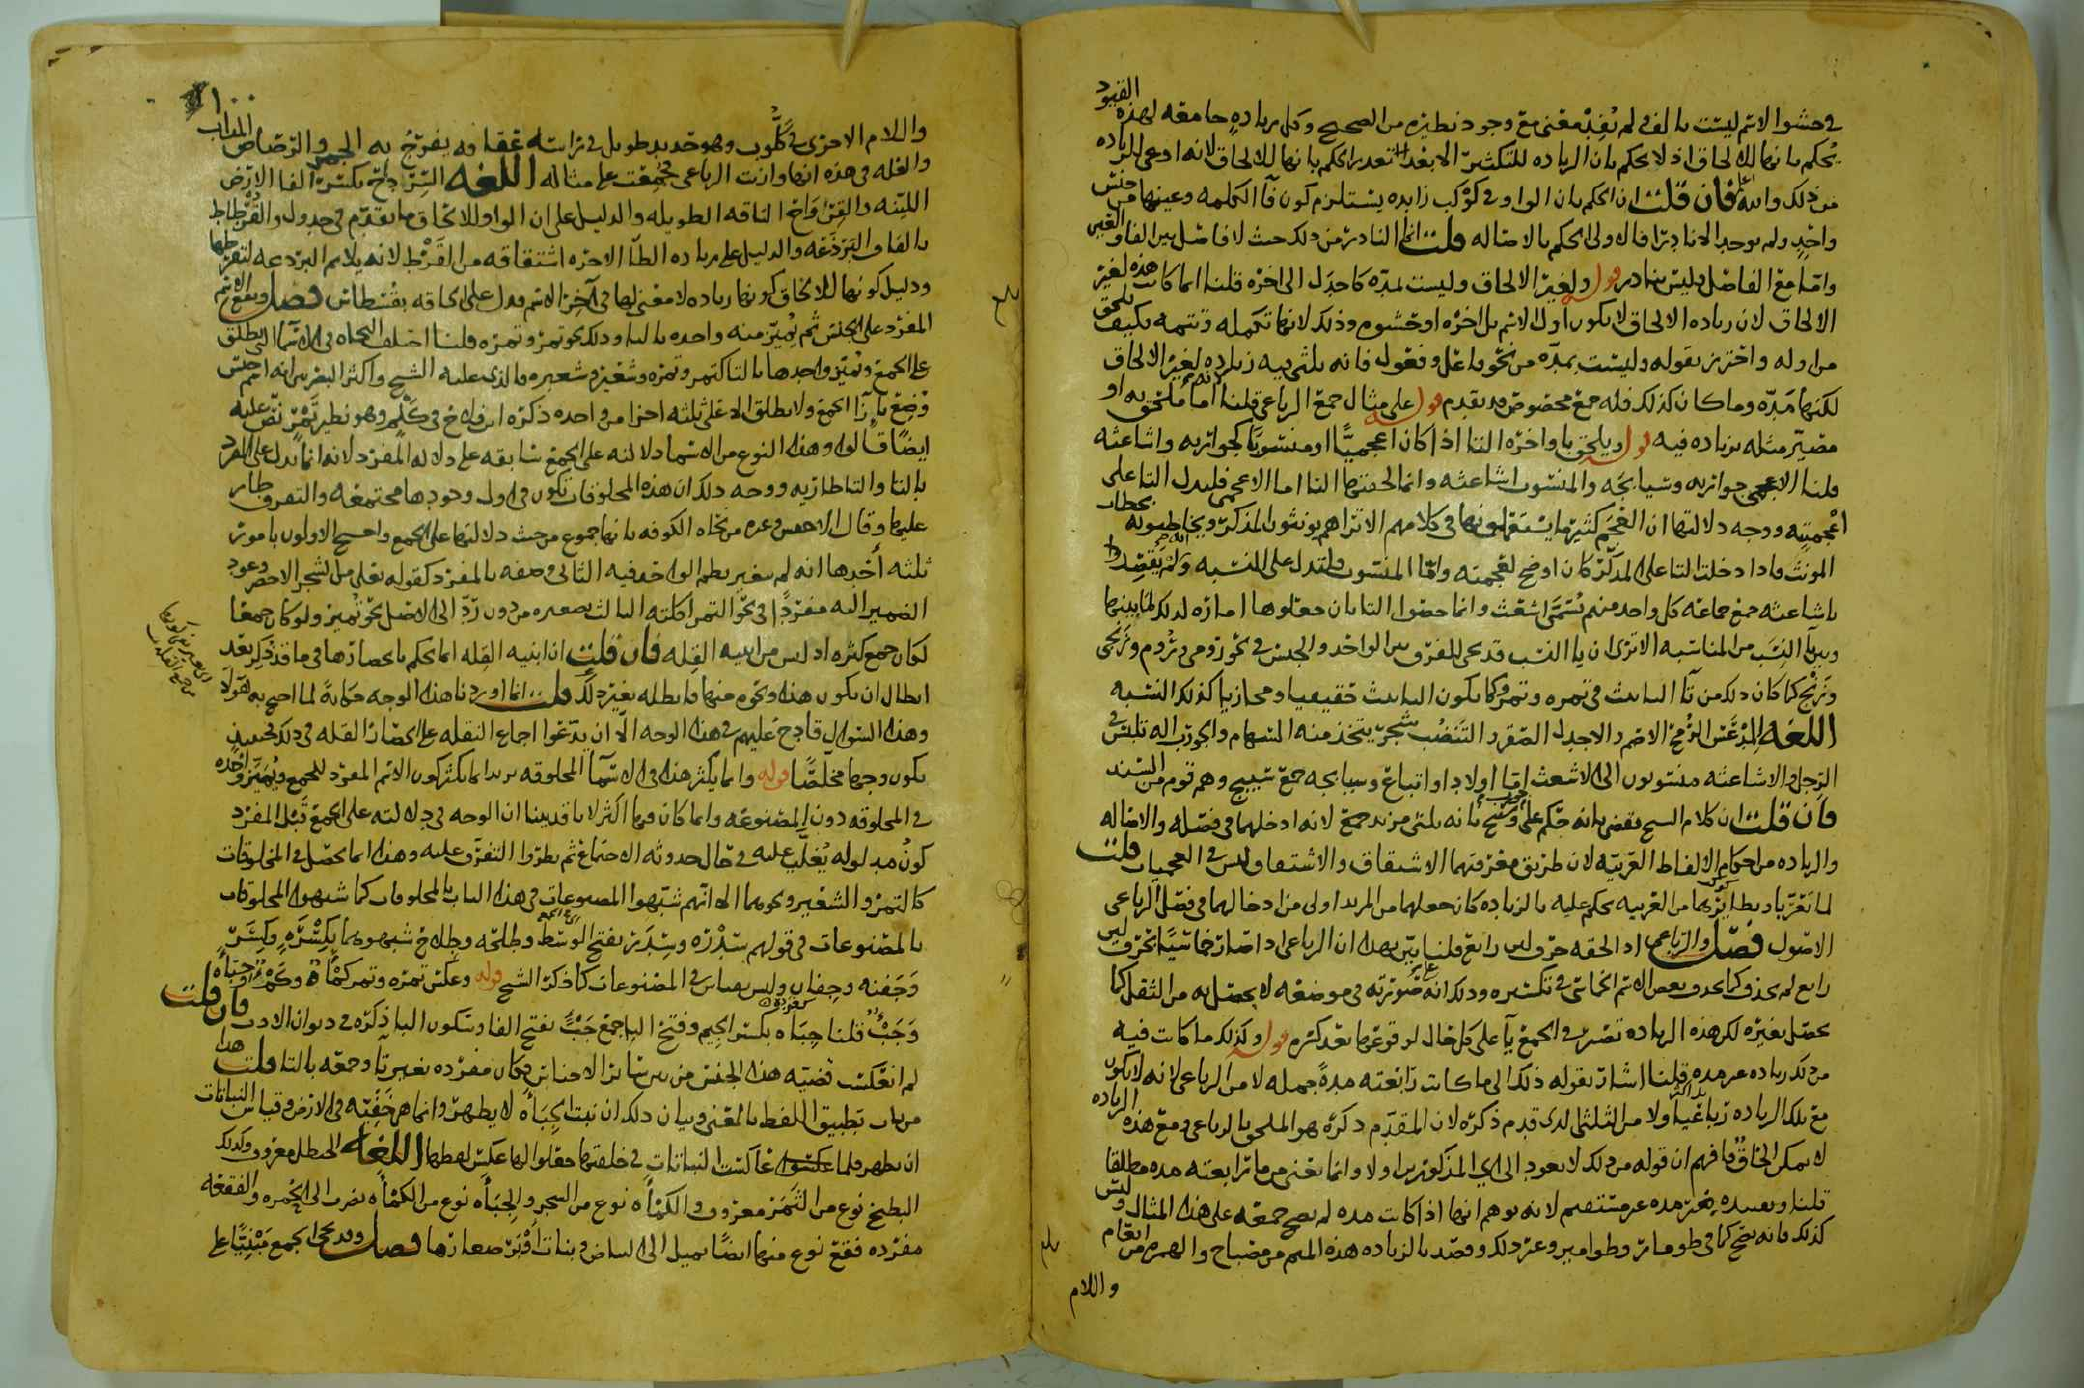 في حشوا الاسم ليست بالف في لم نُفِدْ معنى مع وجود نظيره من الصحيح وكل زيادهٍ جامعه لهذه القيود
يُحكم بانها للالحاق اذ لا يحكم بان الزياده للتكثير الا بعد تعذر الحكم بانها للالحاق لانه ادعى للزياده
من ذلك والله اعلم فان قلت ان الحكم بان الواو في كوكب زايده يستلزم كون فآ الكلمه وعينها من جنس
واحدٍ ولم يوجد الا نادرًا فالاولى الحكم بالاصاله قلت انما النادر من ذلك حيث لا فاصل بين الفا والعين
واما مع الفاصل فليس بنادر قوله ولغير الالحاق وليست بمدّه كاجدل الى اخره قلنا انما كانت هذه لغير
الالحاق لان زياده الالحاق لا تكون اول الاسم بل اخره او حشوه وذلك لانها تكمله وتتمه فكيف تلحق
من اوله واحترز بقوله وليست بمدّه من نحو فاعل وفعول فانه يلتى فيه زياده لغير الالحاق
لكنها مَدّه وما كان كذلك فله جمع مخصوص قد تقدم قوله على مثال جمع الرباعي قلنا اما ملحق به او
مصيّر مثله بزياده فيه قوله ويلحق باواخره التا اذا كان اعجميًّا او منسوبًا كجواربه واشاعثه
قلنا الاعجمي جواربه وسيابجه والمنسوب اشاعثه وانما لحقتها التا اما الاعجمي فليدل التا على
اعجميته ووجه دلالتها ان العَجَم كثيرًا يستعملونها في كلامهم الا تراهم يؤنثون المذكر ويخاطبونه بخطاب
المؤنث فاذا دخلت التا على المذكر كان اوضح لعُجمته واما المنسوب فلتدل على النسبه
باشاعثه جمع جماعه كل واحد منهم يُسَمَّى اشعث وانما حصول التا بان جعلوها اماره لذلك لما بينها
وبين يآ النسب من المناسبه الا ترى ان يا النسب قد تجى للفرق بين الواحد والجنس في نحو رومي ورُوم وزَنجي
وزَنْج كما كان ذلك من تآ التانيث في تمره وتمر وكما يكون التانيث حقيقيا ومجازيا كذلك النسبه
اللغه المِدْعَس الرُّمح الاصم والاجدل الصقر والتَنضُب شجرٌ يتخذ منه السهام والجورب اله تلبس في
الرجل والاشاعثه منسوبون الى الاشعث امّا اولاد او اتباع وسيابجه جمع سيبيج وهم قوم من السند
فان قلت ان كلام الشيخ يقضى بانه حكم على جورب وسيبج بانه ثلثي مزيد جمع لانه ادخلهما في فصله والاصاله
والزياده من احكام الالفاظ العربيّه لان طريق معرفتهما الاشتقاق والاشتقاق ليس في العجميات قلت
لما تعرّبا ونظايرهما من العربيه يحكم عليه بالزياده كان جعلهما من المزيد اولى من ادخالهما في فصل الرباعي
الاصول فصل والرباعي اذا لحقه حرف لين رابع قلنا تبين بهذا ان الرباعي اذا صار خماسيًّا بحرف لين
رابع لم يحذف كما يحذف بعض الاسم الخماسي في تكسيره وذلك انه على صورته في موضعه لا يحصل به من الثقل كما
يحصل بغيره لكن هذه الزياده تصير في الجمع يآ على كل حال لوقوعها بعد كسره قوله وكذلك ما كانت فيه
من ذلك زياده غير مده قلنا اشار بقوله ذلك الى ما كانت رابعته مدةً جمله لا من الرباعي لانه لا يكون
مع تلك الزياده رباعيًّا ولا من الثلثي الذي قدم ذكره لان المقدّم ذكره هو الملحق بالرباعي ومع هذه الزياده
لا يمكن الحاقه فافهم ان قوله من ذلك لا يعود الى اي المذكورين اولا وانما يعني من ما رابعته مده مطلقا
قلنا وتقييده بغير مده غير مستقيم لانه يوهم انها اذا كانت مده لم يصح جمعه على هذا المثال وليس
كذلك فانه يصح كما في طومار وطوامير وغير ذلك وقصد بالزياده هذه الميم من مصباح والهمزه من انعام
واللام
١٠٠
واللام الاخرى في كَلُّوب وهو حديد طويل في راسه عُقافه يفرّجُ به الجمر والرّصاص المذاب
والعله في هذه انها وازنت الرباعي فجُمِعَت على مثاله اللغه السِّرداح بكسر الفا الارض
الليّنه والقِرْوَاح الناقه الطويله والدليل على ان الواو للالحاق ما تقدّم في جدول والقُرْطاط
بالقاف البَرْذَعه والدليل على زياده الطآ الاخره اشتقاقه من القَرْط لانه يلازم البرذعه لتقرطها
ودليل كونها للالحاق كونها زياده لا معنى لها في آخر الاسم فدل على الحاقه بقسطاس فصل ويقع الاسم
المفرد على الجنس ثم يُميّز منه واحده بالتا وذلك نحو تمر وتمره قلنا اختلف النحاه في الاسما التي تطلق
على الجمع وتميّز واحدها بالتا كتمر وتمره وشعير وشعيره فالذي عليه الشيخ واكثر البصريين انه اسم جنس
وُضِعَ بازآ الجمع ولا يطلق الا على ثلثه احزا من واحده ذكره ابن فلاح في كَلِم وهو نظير تَمْر نصّ عليه
ايضًا قالوا وهذا النوع من الاسما دلالته على الجمع سابقه على دلاله المفرد لانه انما يدل على المفرد
بالتا والتا طاريه ووجه ذلك ان هذه المخلوقات تكون في اول وجودها مجتمعه والتفرق طار
عليها وقال الاخفش وغيره من نحاه الكوفه بانها جموع من حيث دلالتها على الجمع واحتج الاولون بامور
ثلثه أحدها انه لم يتغير نظم الواحد فيه الثاني وصفه بالمفرد كقوله تعلى من الشجر الاخضر وعود
الضمير اليه مفردًا في نحو التمر اكلته الثالث تصغيره من دون ردّ الى الاصل نحو تُمَيْر ولو كان جمعا
لكان جمع كثره اذ ليس من ابنيه القله فان قلت ان ابنيه القِله انما يحكم بانحصارها في ما قد ذُكر بعد
ابطال ان يكون هذا ونحوه منها فابطله بغير ذلك قلت انما اوردنا هذا الوجه حكايهً لما احتج به هؤلا
وهذا السؤال قادح عليهم في هذا الوجه الّا ان يدّعوا اجماع النقله على انحصار القله في ذلك فحينئذ
يكون وجها مخلصًا قوله وانما يكثر هذا في الاسمآ المخلوقه يريد انما يكثر كون الاسم المفرد للجمع ويُمَيَّز واحده
في المخلوقه دون المصنوعه وانما كان فيها اكثر لانا قد بينا ان الوجه في دلالته على الجمع قبل المفرد
كونُ مدلوله يُغلّب عليه في حال حدوثه الاجتماع ثم يطرؤا التفرّق عليه وهذا انما يحصل في المخلوقات
كالتمر والشعير ونحوهما الا انهم شبّهوا المصنوعات في هذا الباب بالمخلوقات كما شبهوا المخلوقات
بالمصنوعات في قولهم سِدْرَه وسِدَر بفتح الوسط وطلحه وطِلاح شبهوهما بكِسْرَهٍ وكِسَرٍ
وجَفنه وجِفان وليس بقياس في المصنوعات كما ذكر الشيخ قوله وعكس تمره وتمر كمْأَه وكَمْءٌ وجَبْأه
وجَبْءٌ قلنا جِبَأه بكسر الجيم وفتح البا جمع جَبْءٍ بفتح الفا وسكون البا ذكره في ديوان الادب فان قلت
لم انعكست قضيّه هذا الجنس من بين سائر الاجناس فكان مفرده بغير تآ وجمعه بالتا قلت هذا
من باب تطبيق اللفظ بالمعنى وبيان ذلك ان نبت الجَبَأه لا يظهر وانما هو خَفيّه في الارض وقياس النباتات
ان تظهر فلما عاكست النباتات في خلقتها جعلوا لها عكس لفظها اللغه الحنظل معروف وكذلك
البطيخ نوع من الثَّمَر معروف والكمْأه نوع من الشجر والجَبْأه نوع من الكَمْأه تضرب الى الحُمره والفقعه
مفرده فقع نوع منها ايضًا يميل الى البياض وبنات اَوْبَر صغارها فصل وقد يجى الجمع مَبْنيًّا على